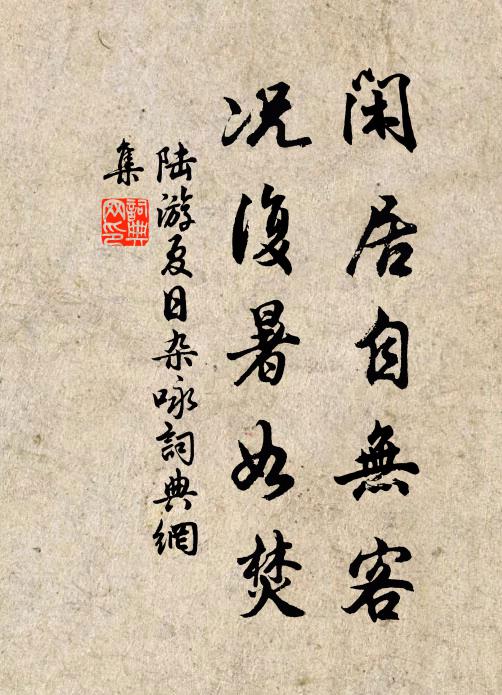 闲居自無客
况復暑如焚
陆游夏日杂咏詞典網
集
詞典網印